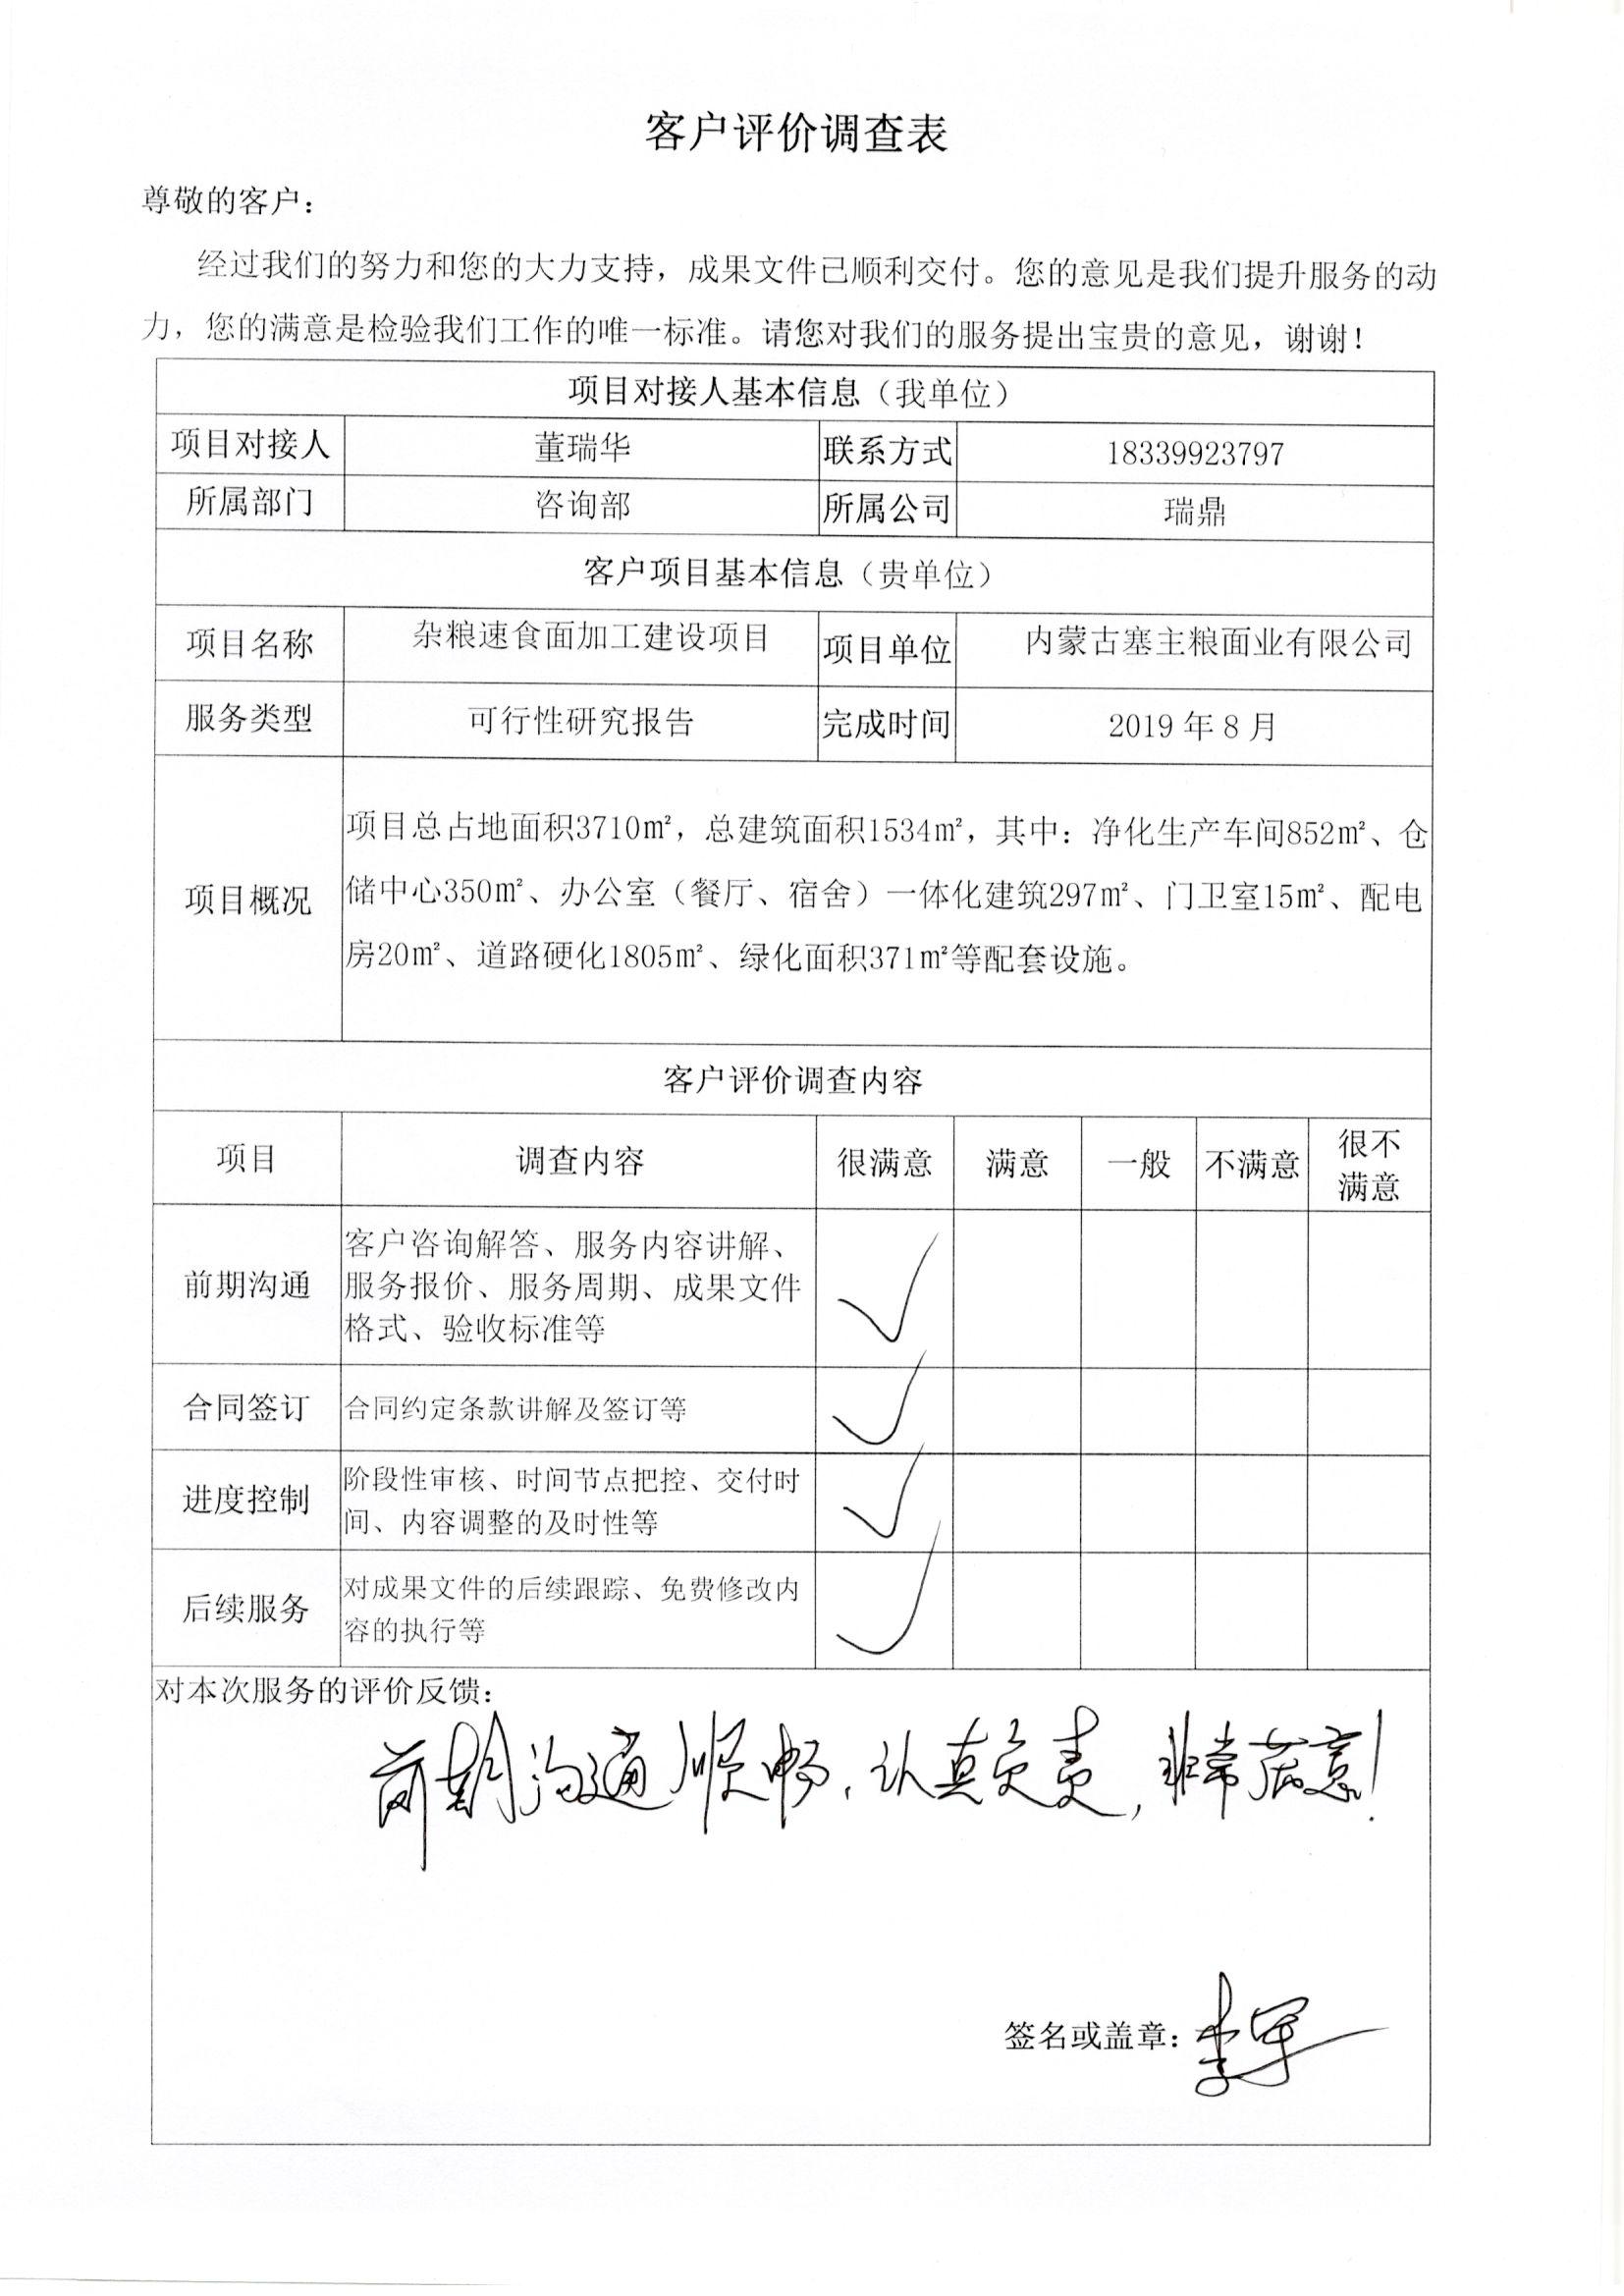 客户评价调查表
尊敬的客户：
经过我们的努力和您的大力支持，成果文件已顺利交付。您的意见是我们提升服务的动
力，您的满意是检验我们工作的唯一标准。请您对我们的服务提出宝贵的意见，谢谢！
项目对接人基本信息（我单位）
项目对接人 董瑞华 联系方式 18339923797
所属部门 咨询部 所属公司 瑞鼎
客户项目基本信息（贵单位）
项目名称 杂粮速食面加工建设项目 项目单位 内蒙古塞主粮面业有限公司
服务类型 可行性研究报告 完成时间 2019 年 8 月
项目概况
项目总占地面积3710㎡，总建筑面积1534㎡，其中：净化生产车间852㎡、仓
储中心350㎡、办公室（餐厅、宿舍）一体化建筑297㎡、门卫室15㎡、配电
房20㎡、道路硬化1805㎡、绿化面积371㎡等配套设施。
客户评价调查内容
项目 调查内容 很满意 满意 一般 不满意 很不
满意
前期沟通
客户咨询解答、服务内容讲解、
服务报价、服务周期、成果文件
格式、验收标准等
合同签订 合同约定条款讲解及签订等
进度控制
阶段性审核、时间节点把控、交付时
间、内容调整的及时性等
后续服务
对成果文件的后续跟踪、免费修改内
容的执行等
对本次服务的评价反馈：
前期沟通顺畅，认真负责，非常满意！
签名或盖章：李军